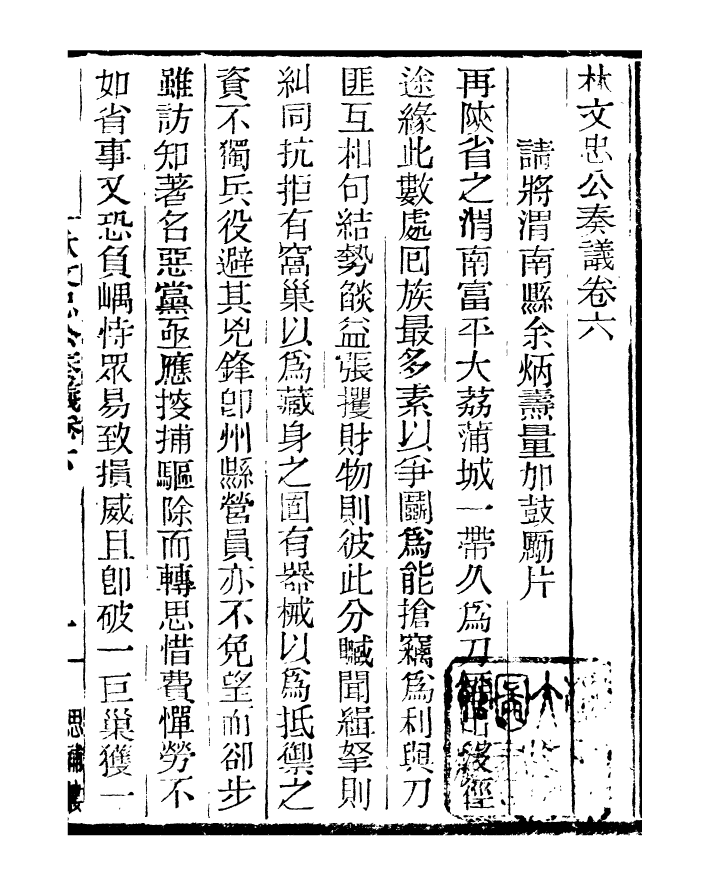 林文忠公奏議卷六
請將渭南縣余炳燾量加鼓勵片
再陝省之渭南富平大荔蒲城一帶久爲刀
途緣此數處囘族最多素以爭鬭爲能搶竊爲利與刀
匪互相句結勢燄益張攫財物則彼此分贓聞緝拏則
糾同抗拒有窩巢以爲藏身之固有器械以爲抵禦之
資不獨兵役避其兇鋒卽州縣營員亦不免望而卻步
雖訪知著名惡黨亟應捘捕驅除而轉思惜費憚勞不
如省事又恐負嵎恃眾易致損威且卽破一巨巢獲一
林文忠公奏議卷六
一
思補樓